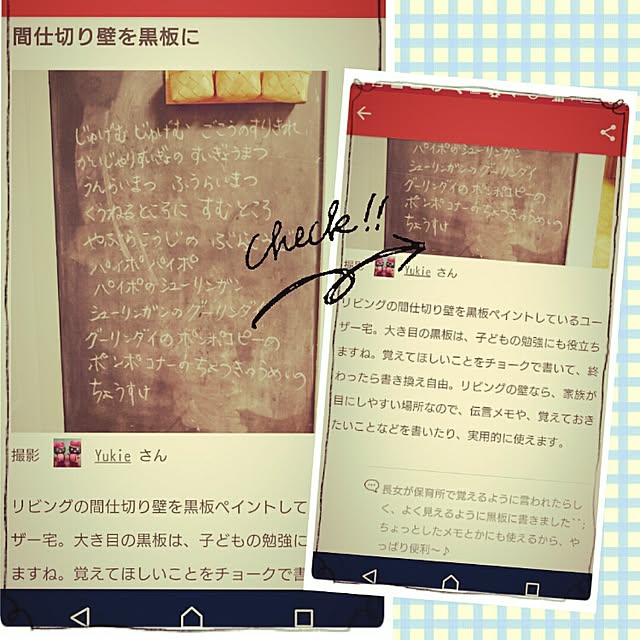 間仕切り壁を黒板に
じゅげむ じゅげむ ごこうのすりきれ
かいじゃりすいぎょの すいぎょうまつ
うんらいまつ ふうらいまつ
くうねるところに すむところ
やぶらこうじの ぶらこ
パイポパイポ
パイポのシューリンガン
シューリンガンのグーリンダイ
グーリンダイのポンポコピーの
ポンポコナーのちょうきゅうめいの
ちょうすけ
撮影 Yukie さん
リビングの間仕切り壁を黒板ペイントして
ザー宅。大き目の黒板は、子どもの勉強に
ますね。覚えてほしいことをチョークで書
Check!!
パイポのシューリンガン
シューリンガンのグーリンダイ
グーリンダイのポンポコピーの
ポンポコナーのちょうきゅうめいの
ちょうすけ
撮影 Yukie さん
リビングの間仕切り壁を黒板ペイントしているユー
ザー宅。大き目の黒板は、子どもの勉強にも役立ち
ますね。覚えてほしいことをチョークで書いて、終
わったら書き換え自由。リビングの壁なら、家族が
目にしやすい場所なので、伝言メモや、覚えておき
たいことなどを書いたり、実用的に使えます。
長女が保育所で覚えるように言われたらし
く、よく見えるように黒板に書きました^^;
ちょっとしたメモとかにも使えるから、や
っぱり便利〜♪